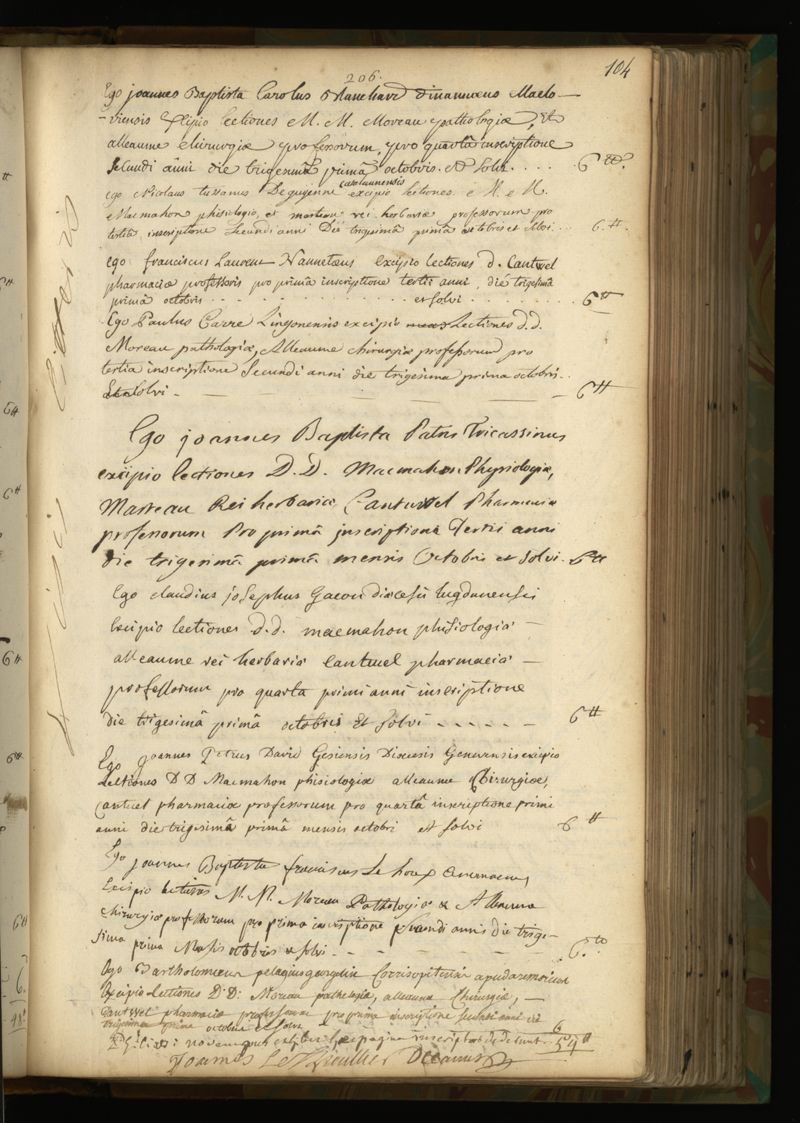 206.
104
Ego joannes Baptista Carolus Blanchard dinannæus Maclo-
-viensis excipio lectiones M. M. Moreau pathologiæ, et
alleaume chirurgiæ professorum, pro quartâ inscriptione
secundi anni die trigesimâ primâ octobris. et solvi. . . . . 6 tt.
ego Nicolaus tussanus Deguyenne excipio lectiones e M. e M.
Macmahon phisiologiæ, et marteau rei herbariæ professorum pro
tertiâ inscriptione secundi anni Die trigesimâ primâ octobris et solvi . . . 6. tt.
ego franciscus Laurent Nannetæus excipio lectiones d. Cantwel
pharmaciæ professoris pro primâ inscriptione tertii anni, die trigesimâ
primâ octobris . . . . . et solvi . . . . . 6 tt
Ego Paulus Carre Lingonensis excipio Lectiones d.d.
Moreau pathologiæ, Alleaume chirurgiæ professorum pro
tertia inscriptione secundi anni die trigesima prima octobris
et solvi - 6 tt
Ego joannes Baptista Patris Tricassinus
excipio lectiones D.D. Macmahon Physiologiæ,
Marteau Rei herbariæ Cantwel Pharmaciæ
professorum Pro primâ inscriptione Tertii anni
die trigesimâ primâ mensis Octobris et solvi. 6 tt
Ego claudius josephus Gacon diœcesis lugdunensis
Excipio lectiones d.d. macmahon phisiologiæ
alleaume rei herbariæ Cantwel pharmaciæ
professorum pro quarta primi anni inscriptione
die trigesimâ primâ octobris et solvi - - - - - 6 tt
Ego Joannes Petrus David Gesiensis Diœcesis Genevensis excipio
Lectiones D D Macmahon phisiologiæ alleaume Chirurgiæ,
Cantuel pharmaciæ professorum pro quartâ inscriptione primi
anni die trigesimâ primâ mensis octobri et solvi 6 tt
Ego joannes Baptista franciscus Le houx
Excipio lectiones M. M. Moreau Pathologiæ & Alleaume
chirurgiæ professorum pro prima inscriptione secundi anni die trige-
sima prima Mensis octobris et solvi - - - 6. tt
Ego Bartholomæus pelagius Corrisopitensis
Excipio Lectiones D.D. Moreau pathologiæ, alleaume Chirurgiæ, -
Cantwel pharmaciæ professorum pro prima inscriptione secundi anni die
trigesima prima octobris et solvi 6
novem pagina inscript 54 tt
Joannes Le Thieullier Decanus